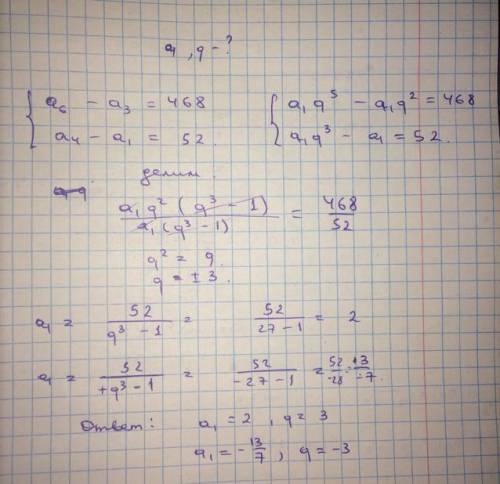 a₁, q - ?
{ a₆ - a₃ = 468 { a₁q⁵ - a₁q² = 468
a₄ - a₁ = 52. a₁q³ - a₁ = 52.
делим.
a₁q² (q³ - 1) / a₁(q³ - 1) = 468 / 52
q² = 9.
q = ±3.
a₁ = 52 / (q³ - 1) = 52 / (27 - 1) = 2
a₁ = 52 / (+q³ - 1) = 52 / (-27 - 1) = 52 / -28 = 13 / -7.
Ответ: a₁ = 2, q = 3
a₁ = -13/7, q = -3